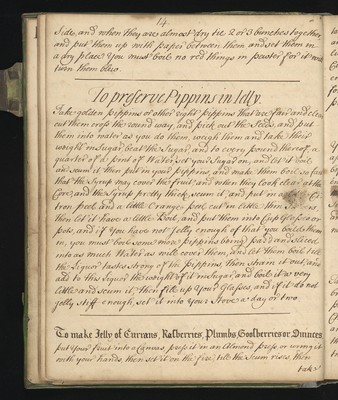 14.
Side, and when they are almost dry tie 2 or 3 bunches together
and put them up with paper between them and set them in
a dry place You must boil no red things in pewter for it will
turn them blew.
To preserve Pippins in Jelly.
Take golden pippins or other right pippins that are fair and clear
cut them cross the round way, and pick out the Seeds, and put
them into water as you do them, weigh them and take their
weight in Sugar, beat the Sugar, and to every pound thereof a
quarter of a pint of Water, set your Sugar on, and let it boil
and scum it, then put in your pippins, and make them boil so fast
that the Syrup may cover the fruit, and when they look clear at the
Core, and the Syrup pretty thick, scum it and put in Ci-
tron peel, and a little Orange peel cut in little thin
then let it have a little Boil, and put them into Cup Glasses or
pots, and if you have not Jelly enough of that you boild them
in, you must boil some more pippins being pard and sliced
into as much Water as will cover them, and let them boil till
the Liquor tasts strong of the Pippins, then strain it out, and
add to this Liquor the weight of it in Sugar, and boil it a very
little and scum it, then fill up your Glasses, and if it do not
Jelly stiff enough, set it into your Stove a day or two.
To make Jelly of Currans, Rasberries, Plumbs, Goosberries or Quinces
put your fruit into a Canvas, press it in an Almond press, or wring it
with your hands, then set it on the fire, till the Scum rises, then
take